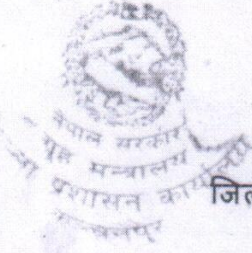 नेपाल सरकार
गृह मन्त्रालय
प्रशासन कार्यालय
जिल